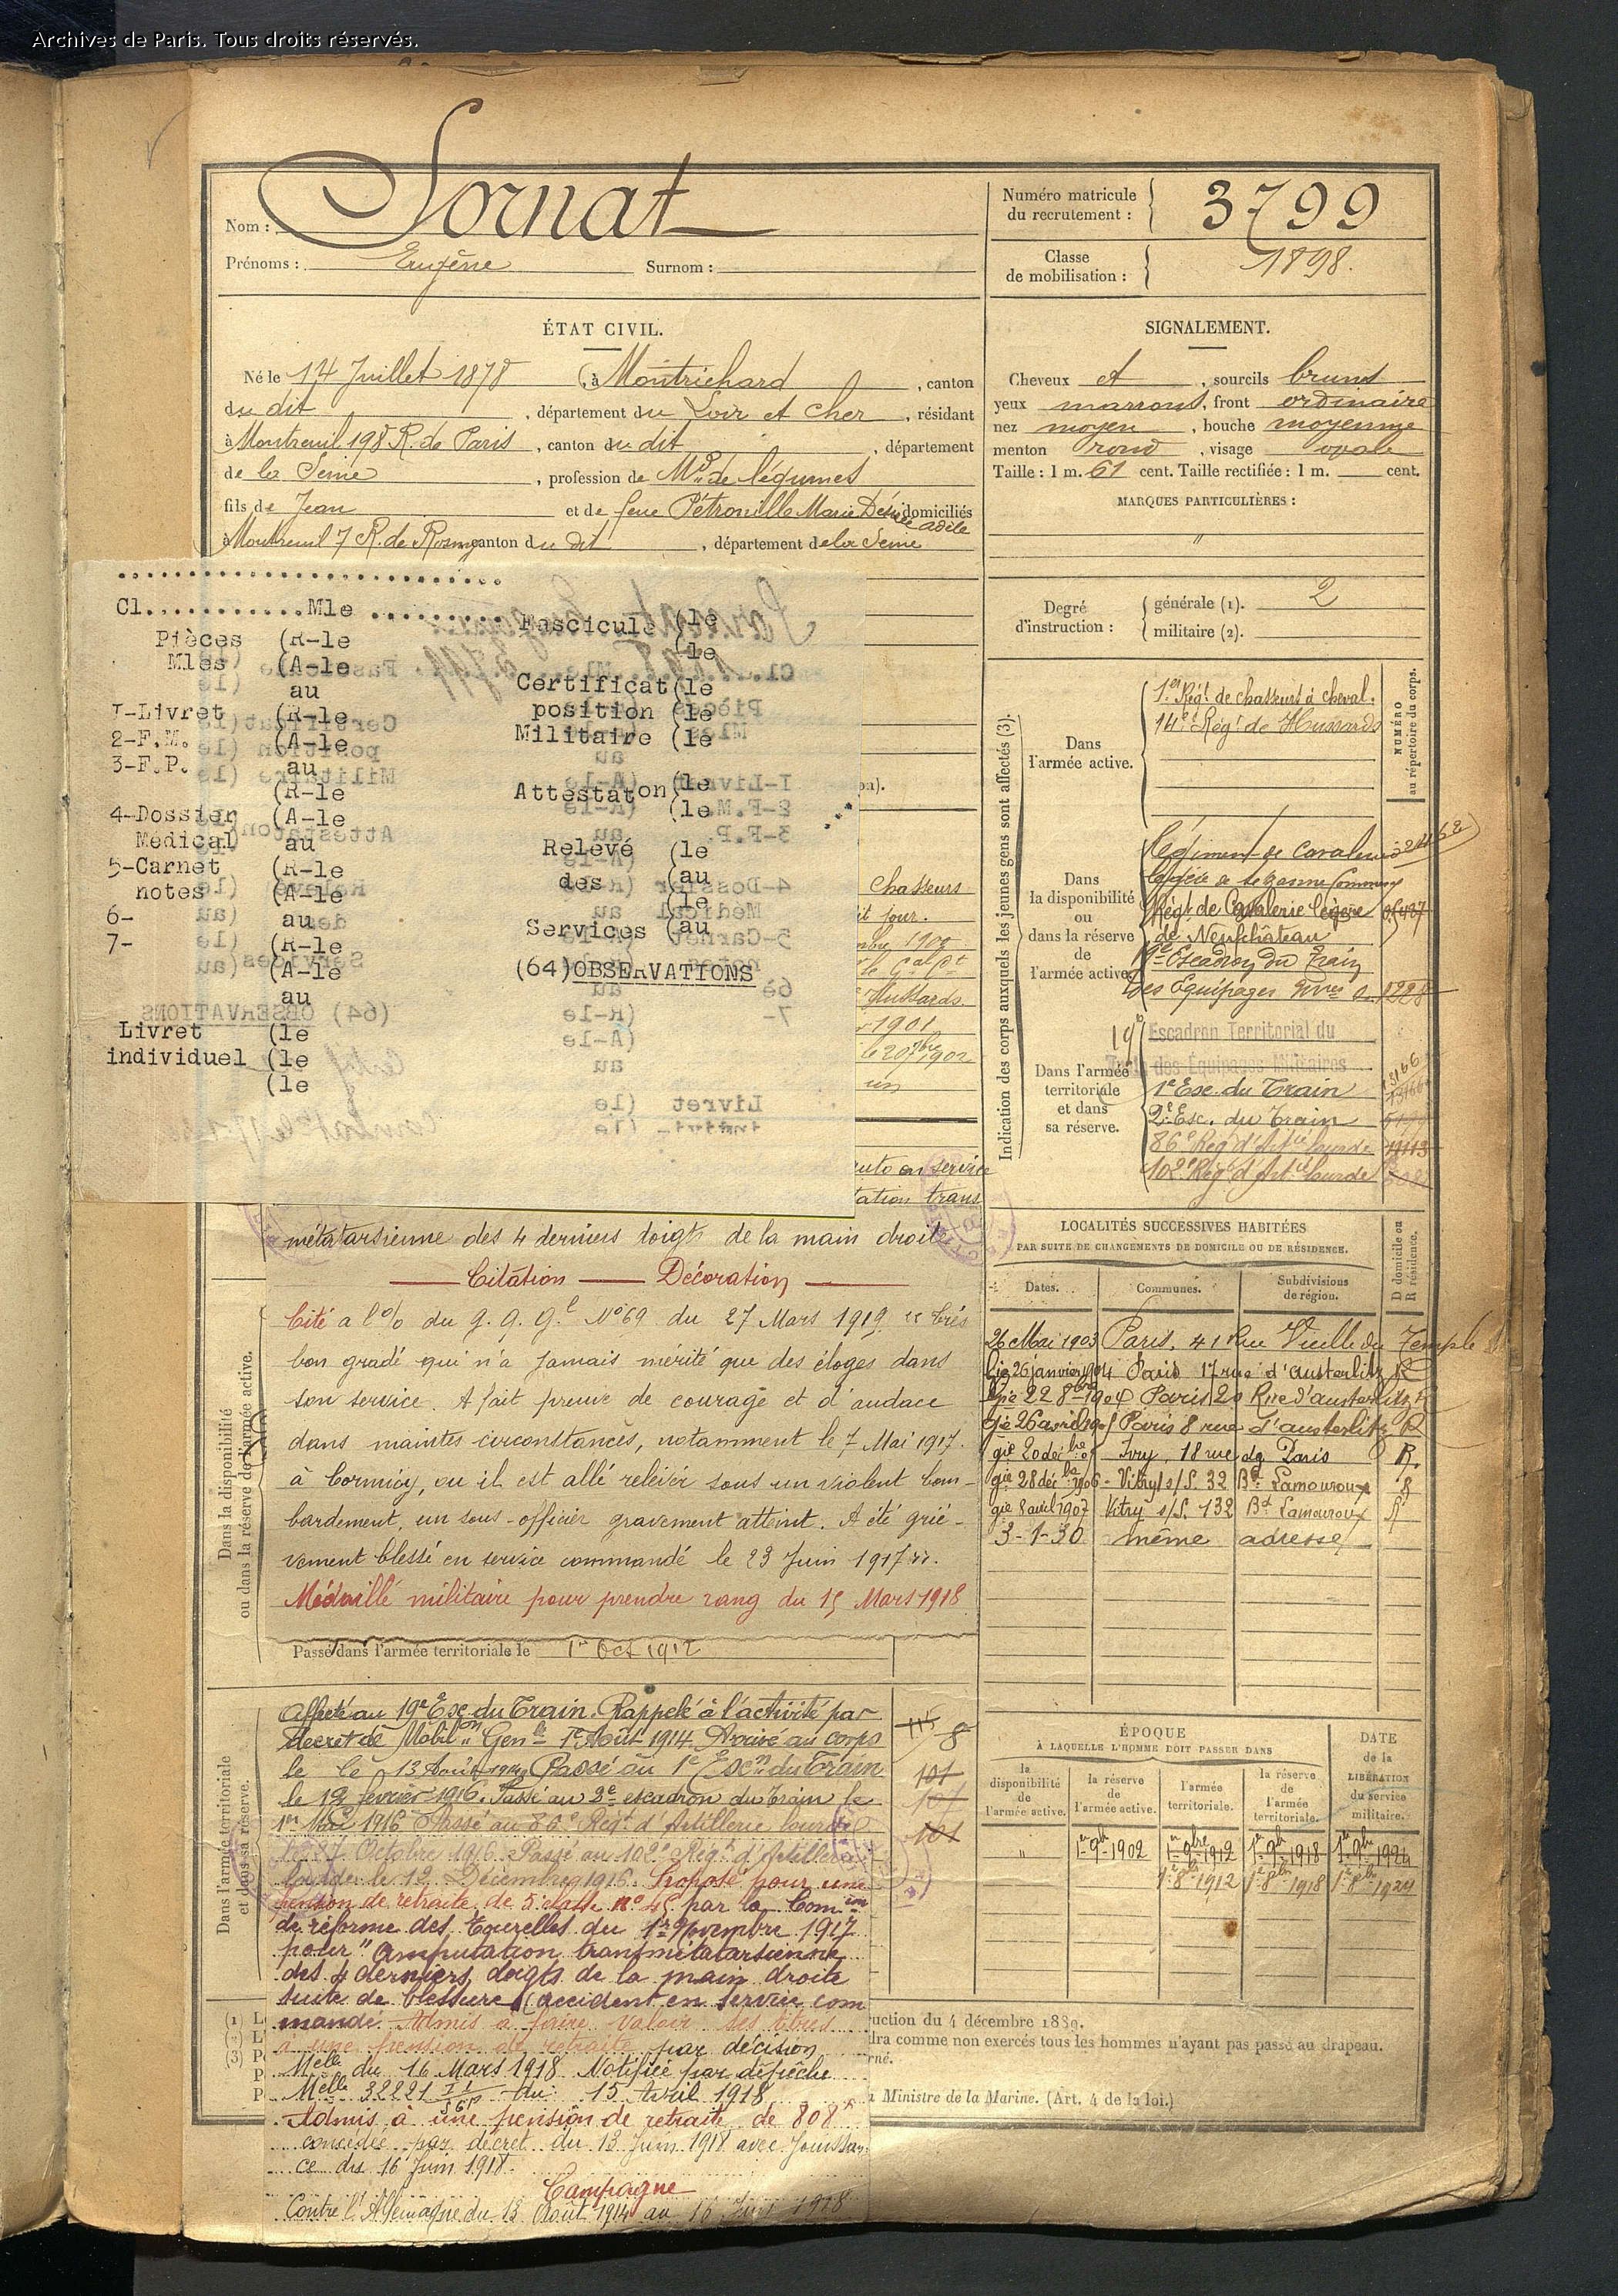 Archives de Paris. Tous droits réservés.
Nom : Sornat
Prénoms : Eugène Surnom :
Numéro matricule du recrutement : 3799
Classe de mobilisation : 1898.
ÉTAT CIVIL.
Né le 14 Juillet 1878, à Montrichard, canton
du dit, département du Loir et Cher, résidant
à Montreuil 198 R. de Paris, canton du dit, département
de la Seine, profession de Md de légumes
fils de Jean et de feue Pétronille Marie Désirée Adèle domiciliés
à Montreuil 7 R. de Rosny canton du dit, département de la Seine
SIGNALEMENT.
Cheveux et, sourcils bruns
yeux marrons, front ordinaire
nez moyen, bouche moyenne
menton rond, visage ovale
Taille : 1 m. 61 cent. Taille rectifiée : 1 m. cent.
MARQUES PARTICULIÈRES :
"
Degré d'instruction : générale (1). 2
militaire (2).
Cl............Mle ..........
Pièces (R-le
Mles (A-le
au
I-Livret (R-le
2-F.M. (A-le
3-F.P. au
(R-le
4-Dossier (A-le
Médical au
5-Carnet (R-le
notes (A-le
6- au
7- (R-le
(A-le
au
Livret (le
individuel (le
(le
Fascicule (le
(le
Certificat (le
position (le
Militaire (le
Attestaton (le
(le
Relevé (le
des (au
(le
Services (au
(64)OBSERVATIONS
Chasseurs
it jour.
1902
Hussards
1901
le 20 7bre 1902
auto en service
tation trans
métatarsienne des 4 derniers doigts de la main droite
Citation — Décoration
Cité à l'o/o du G. Q. Gl N° 69 du 27 Mars 1919 "très
bon gradé qui n'a jamais mérité que des éloges dans
son service. A fait preuve de courage et d'audace
dans maintes circonstances, notamment le 7 Mai 1917
à Cormicy, ou il est allé relever sous un violent bom-
bardement, un sous-officier gravement atteint. A été griè-
vement blessé en service commandé le 23 Juin 1917".
Médaillé militaire pour prendre rang du 15 Mars 1918
Passé dans l'armée territoriale le 1er Oct 1912
Dans la disponibilité ou dans la réserve de l'armée active.
Dans l'armée territoriale et dans sa réserve.
Affecté au 19e Esc du Train. Rappelé à l'activité par
décret de Mobilon Genle 1er Août 1914. Arrivé au corps
le le 13 Août 1914 Passé au 1e Escn du Train
le 19 février 1916. Passé au 2e escadron du Train le
1er Mai 1916 Passé au 86e Régt d'Artillerie lourde
le 27 Octobre 1916. Passé au 102e Régt d'Artillerie
lourde le 12 Décembre 1916. Proposé pour une
pension de retraite de 5e classe n° 45 par la Comion
de réforme des Tourelles du 1er Novembre 1917
pour "Amputation transmétatarsienne
des 4 derniers doigts de la main droite
suite de blessure (accident en service com
mandé. Admis à faire valoir ses titres
à une pension de retraite par décision
Melle du 16 Mars 1918 Notifiée par dépêche
Melle 32221 du 15 Avril 1918
Admis à une pension de retraite de 808f
concédée par décret du 13 Juin 1918 avec Jouissan-
ce du 16 Juin 1918.
Campagne
Contre l'Allemagne du 13 Août 1914 au 16 Juin 1918
Indication des corps auxquels les jeunes gens sont affectés (3).
NUMÉRO au répertoire du corps.
Dans l'armée active.
1er Régt de chasseurs à cheval.
14e Régt de Hussards
Dans la disponibilité ou dans la réserve de l'armée active.
Régiment de Cavalerie
légère de Sézanne
Régt de Cavalerie légère
de Neufchâteau
Escadron du Train
des Equipages
Dans l'armée territoriale et dans sa réserve.
19e Escadron Territorial du
Train des Équipages Militaires
1e Esc. du Train
2e Esc. du Train
86e Rég d'Artie lourde
102e Régt d'Artie lourde
LOCALITÉS SUCCESSIVES HABITÉES
PAR SUITE DE CHANGEMENTS DE DOMICILE OU DE RÉSIDENCE.
Dates. Communes. Subdivisions de région. D domicile ou R résidence.
26 Mai 1903 Paris, 41 Rue Vieille du Temple
Gie 26 janvier 1904 Paris 17 rue d'Austerlitz R
Gie 22 8bre 1904 Paris 20 Rue d'Austerlitz R
gie 26 avril 1905 Paris 8 rue d'Austerlitz R
gie 20 décbre Ivry, 18 rue de Paris R.
gie 28 décbre 1906 - Vitry s/S. 32 Bd Lamouroux R
gie 8 avril 1907 Vitry s/S. 132 Bd Lamouroux R
3-1-30 même adresse
ÉPOQUE
À LAQUELLE L'HOMME DOIT PASSER DANS
la disponibilité de l'armée active.
la réserve de l'armée active.
l'armée territoriale.
la réserve de l'armée territoriale.
DATE de la LIBÉRATION du service militaire.
" 1er 9b 1902 1er 9bre 1912 1er 9b 1918 1er 9b 1924
1er 8b 1912 1er 8b 1918 1er 8b 1924
(1) L
(2) L'
(3) P
uction du 4 décembre 1889.
dra comme non exercés tous les hommes n'ayant pas passé au drapeau.
rné.
Ministre de la Marine. (Art. 4 de la loi.)